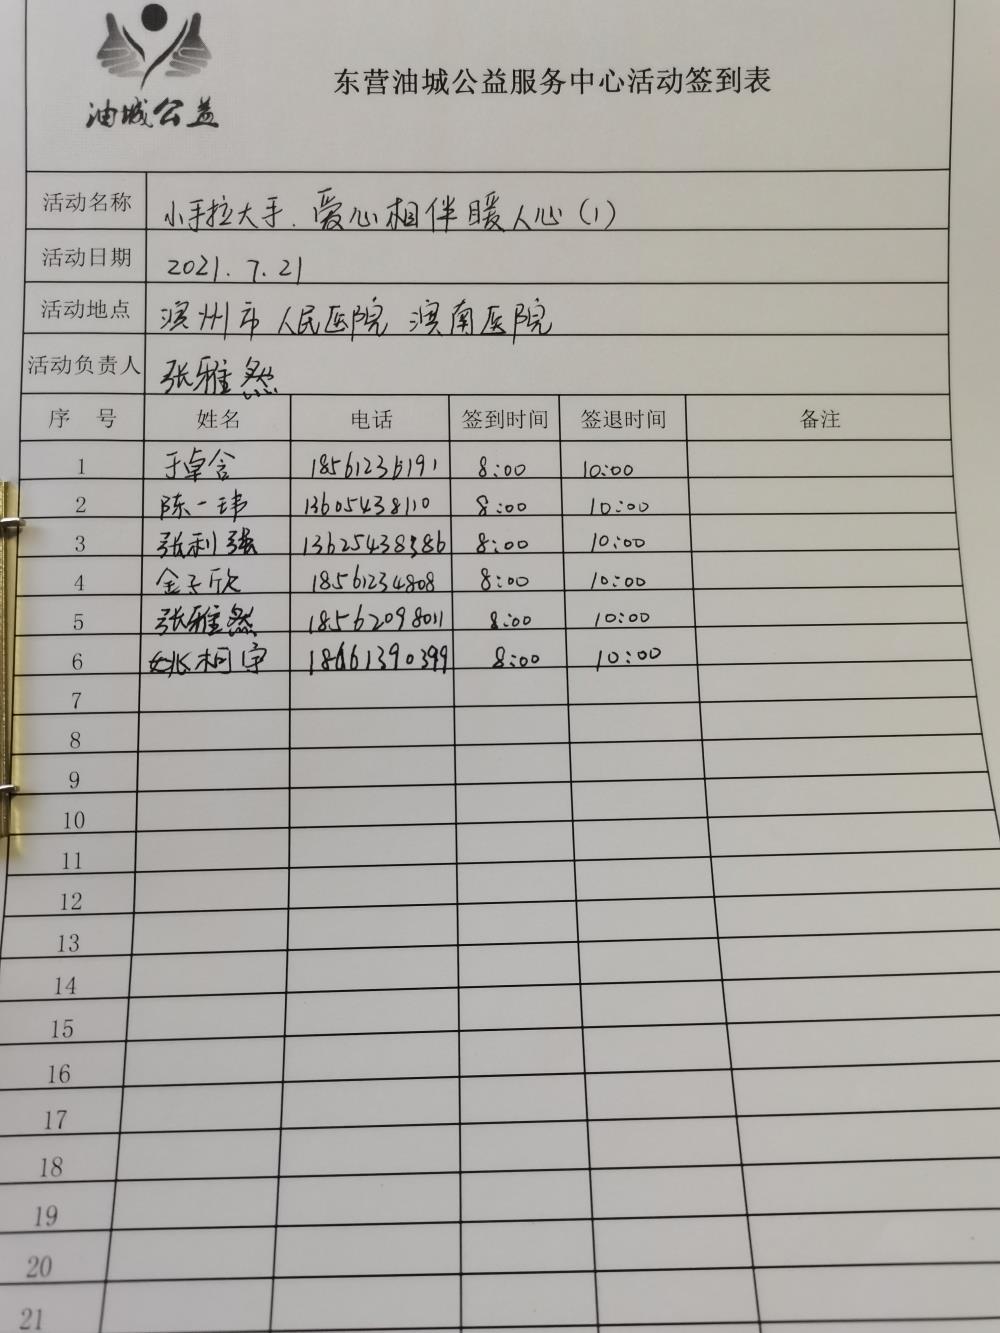 油城公益
东营油城公益服务中心活动签到表
活动名称 小手拉大手.爱心相伴暖人心(1)
活动日期 2021.7.21
活动地点 滨州市人民医院 滨南医院
活动负责人 张雅然
序 号 姓名 电话 签到时间 签退时间 备注
1 于卓含 8:00 10:00
2 陈一玮 13605438110 8:00 10:00
3 张利强 13625438386 8:00 10:00
4 金子欣 18561234808 8:00 10:00
5 张雅然 18562098011 8:00 10:00
6 姚桐宇 18661390399 8:00 10:00
7
8
9
10
11
12
13
14
15
16
17
18
19
20
21